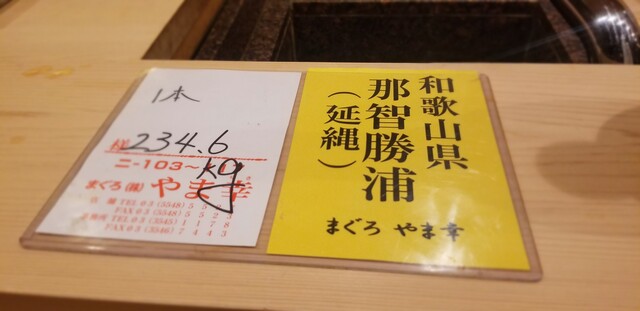 1本
234.6
kg
様
ニ-103~
まぐろ(株)やま幸
TEL 03(3548)5
FAX 03(3548)5523
TEL 03(3545)1178
FAX 03(3546)7443
和歌山県
那智勝浦
(延縄)
まぐろ やま幸